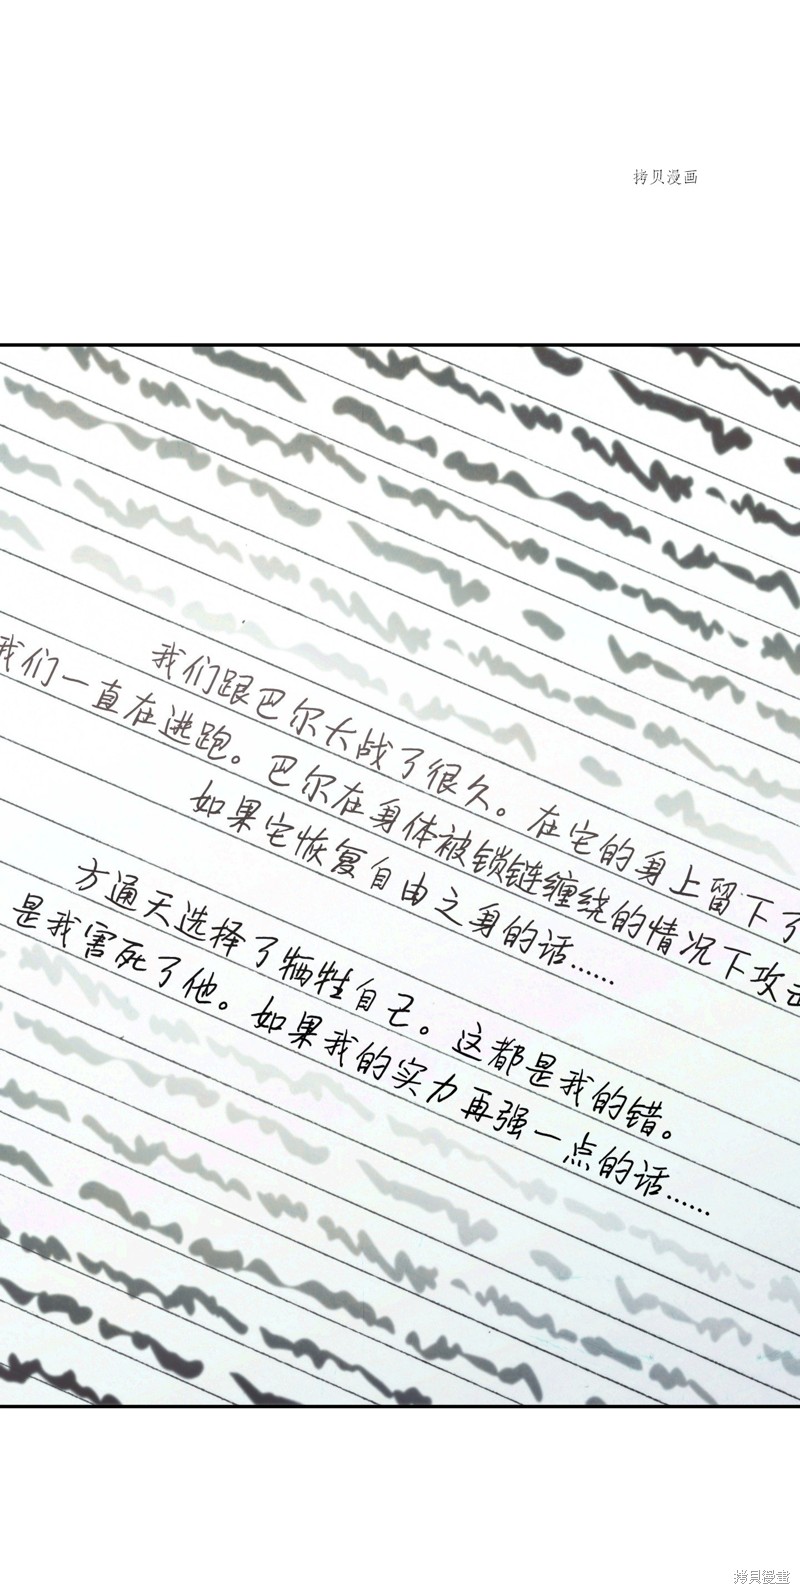 拷贝漫画
我们跟巴尔大战了很久。在它的身上留下了
我们一直在逃跑。巴尔在身体被锁链缠绕的情况下攻击
如果它恢复自由之身的话……
方通天选择了牺牲自己。这都是我的错。
是我害死了他。如果我的实力再强一点的话……
拷贝漫畫